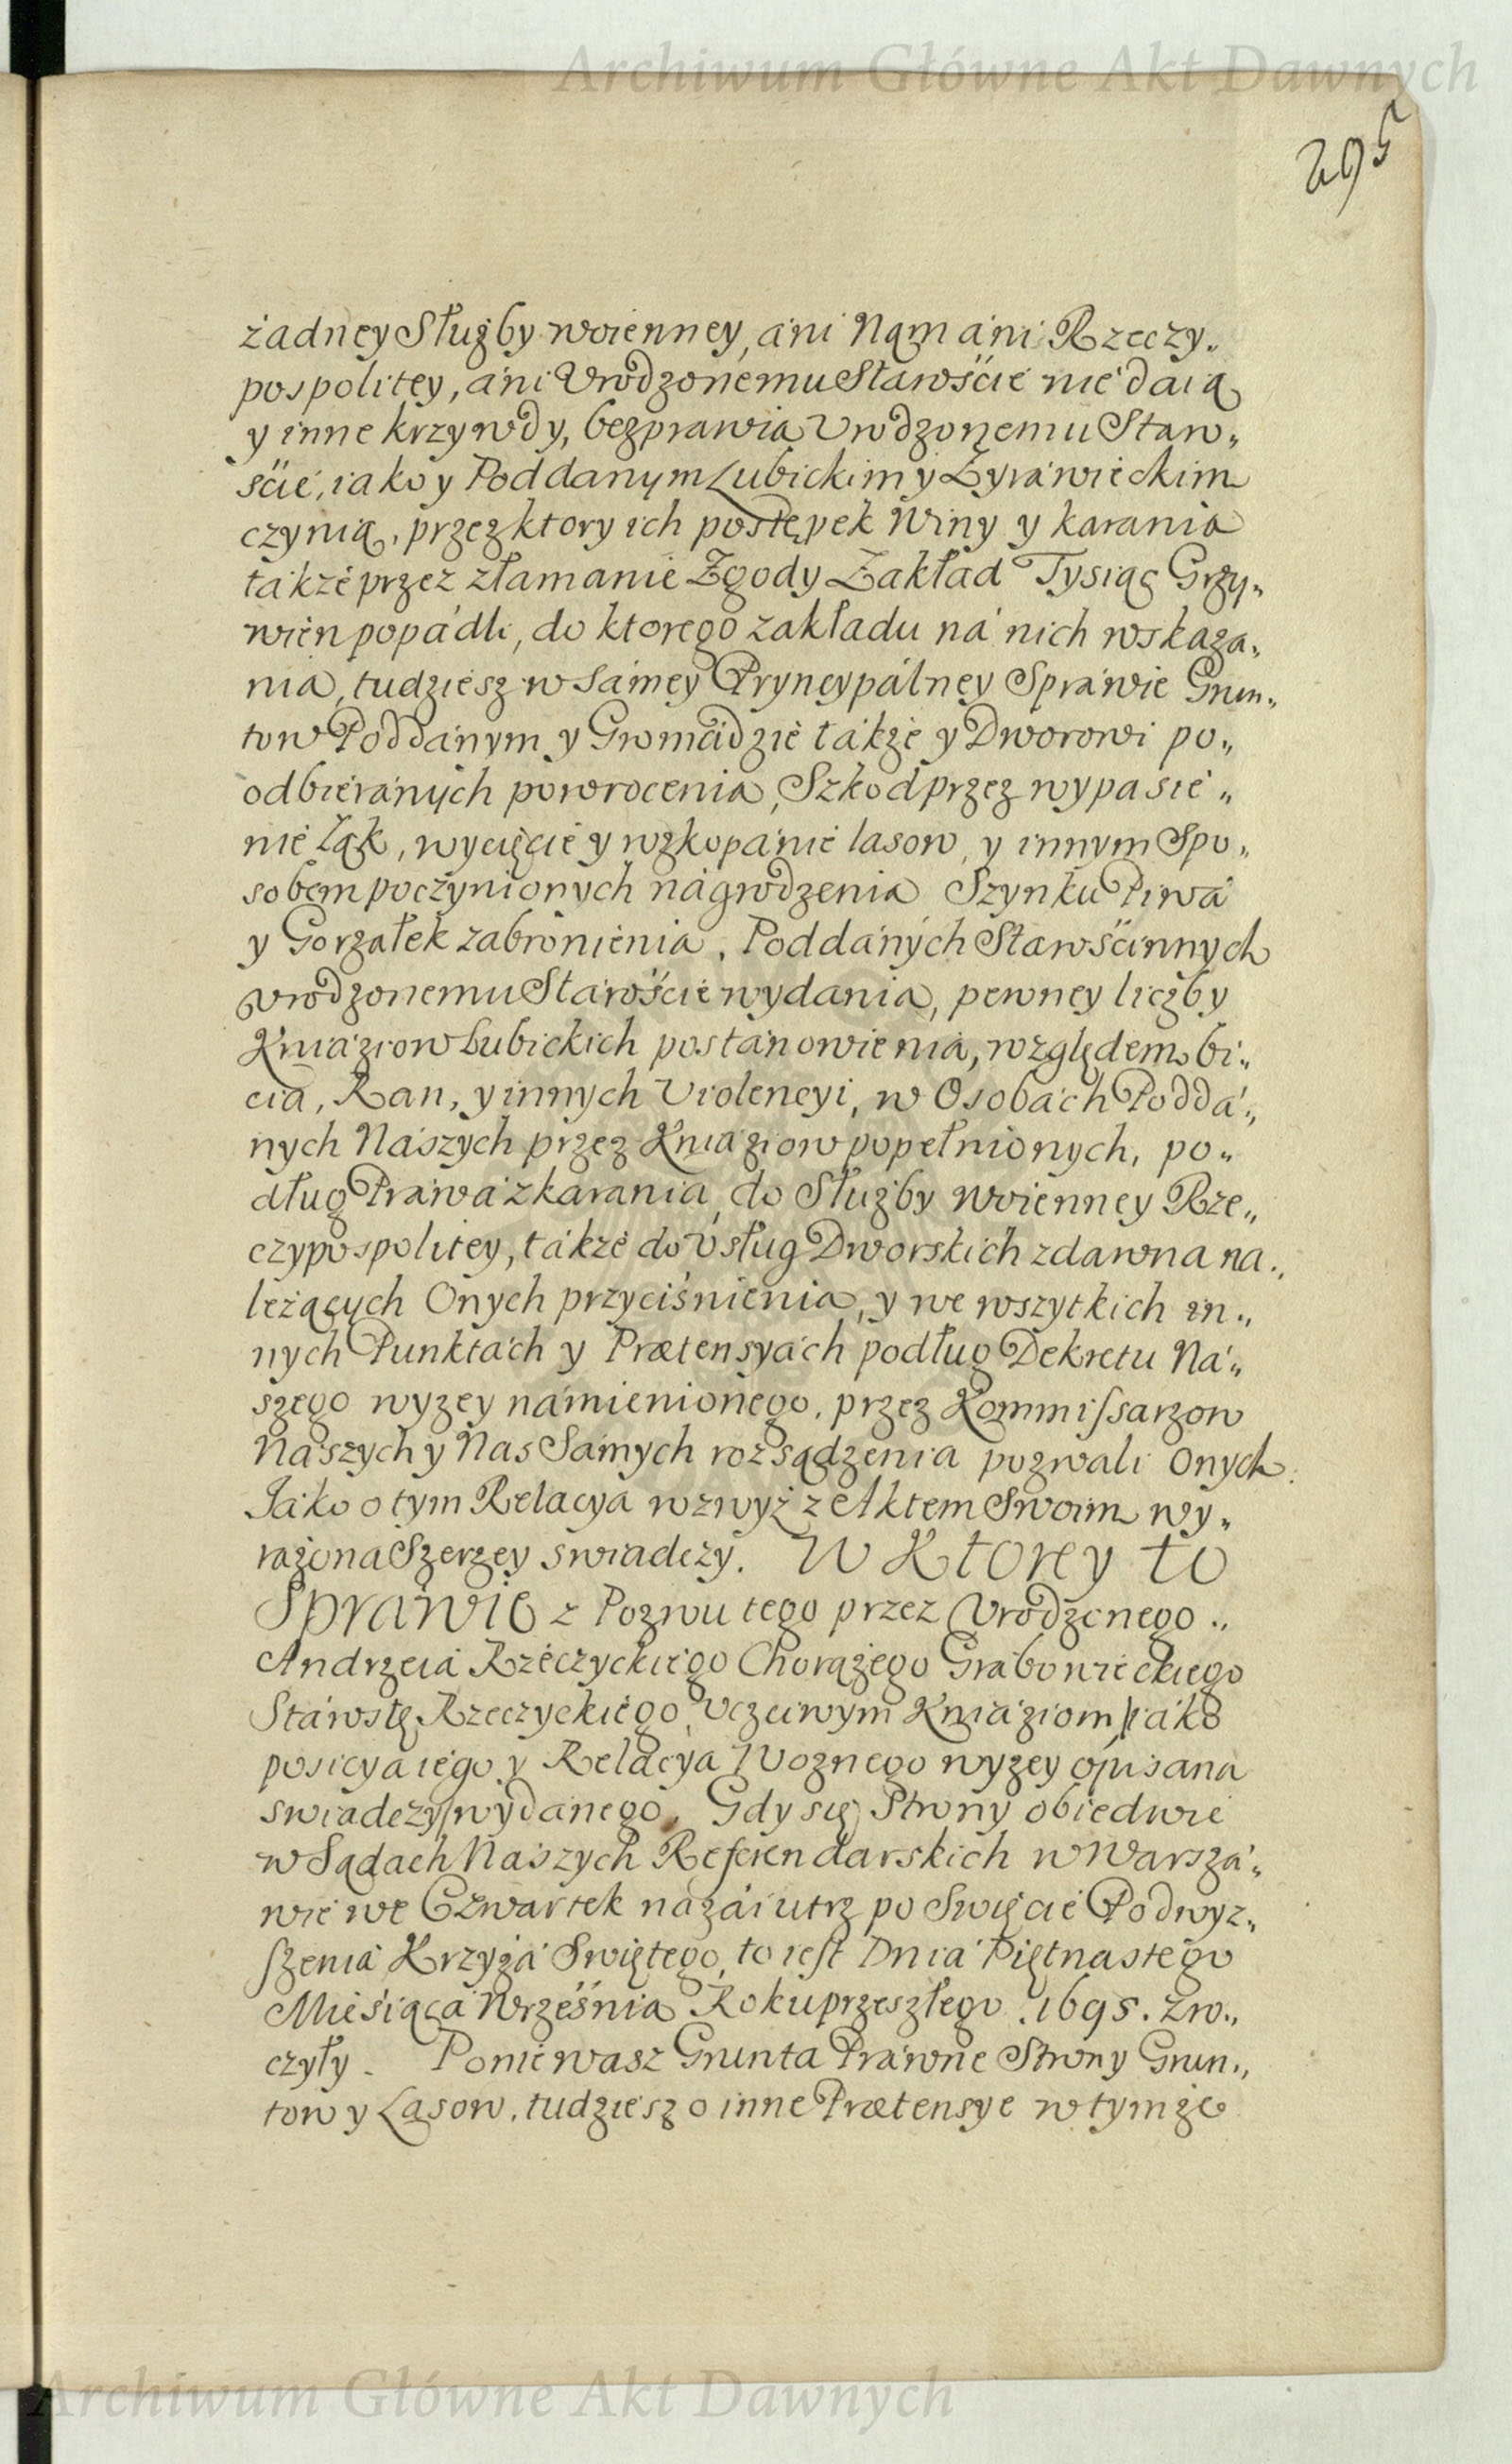 Archiwum Główne Akt Dawnych
295
żadney Służby woienney, áni Nąm áni Rzeczy„
pospolitey, áni Vrodzonemu Staroście nie daią
y inne krzywdy, bezprawia Vrodzonemu Staro„
ście, iako y Poddanym Lubickim y Żyráwieckim
czynią, przez ktory ich postępek Winy y karania
tákże przez złamanie Zgody Zakład Tysiąc Grzy„
wien popádli, do ktorego zakładu ná nich wskaza„
nia, tudziesz w sámey Pryncypálney Spráwie Grun„
tow Poddánym y Gromádzie tákże y Dworowi po„
odbieránych powrocenia, Szkod przez wypasie„
nie Łąk, wycięcie y wykopánie lasow, y innym Spo„
sobem poczynionych nágrodzenia Szynku Piwá
y Gorzałek zabronienia, Poddánych Starościnnych
Vrodzonemu Stárościé wydania, pewney liczby
Kniáziow Lubickich postánowienia, względem bi„
cia, Ran, y innych Violencyi, w Osobách Poddá„
nych Nászych przez Kniáziow popełnionych, po„
dług Práwá zkarania, do Służby woienney Rze„
czypospolitey, tákże do Vsług Dworskich zdawna na„
leżących Onych przyciśnienia, y we wszytkich in„
nych Punktách y Prætensyách podług Dekretu Ná„
szego wyżey námienionego, przez Kommissarzow
Nászych y Nas Sámych rozsądzenia pozwali Onych.
Jáko o tym Relacya wzwyż z Aktem Swoim wy„
rażona Szerzey swiadczy. W Ktorey to
Spráwie z Pozwu tego przez Vrodzonego„
Andrzeiá Rzeczyckiego Chorążego Grábowieckiego
Stárostę Rzeczyckiego, Vczciwym Kniáziom /iáko
posicya iego y Relacya Woznego wyżey opisana
swiadczy/ wydánego, Gdy się Strony obiedwie
w Sądách Nászych Referendarskich w Warszá„
wie we Czwartek názáiutrz po Swięcie Podwyż„
szenia Krzyżá Swiętego, to iest Dniá Piętnastego
Miesiącá Wrześnią Roku przeszłego 1695. zro„
czyły. Poniewasz Grunta Práwne Strony Grun„
tow y Lasow, tudziesz o inne Prætensye w tymże
Archiwum Główne Akt Dawnych